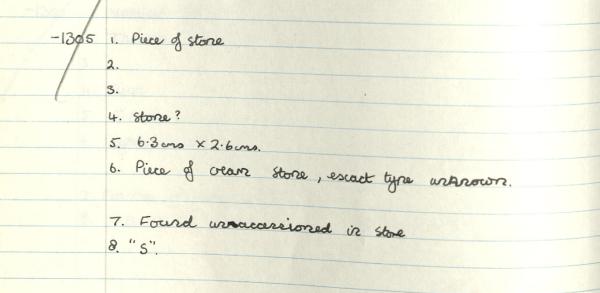 -1305 1. Piece of stone
2.
3.
4. Stone?
5. 6.3cms × 2.6cms.
6. Piece of cream stone, exact type unknown.
7. Found unaccessioned in store
8. "S".